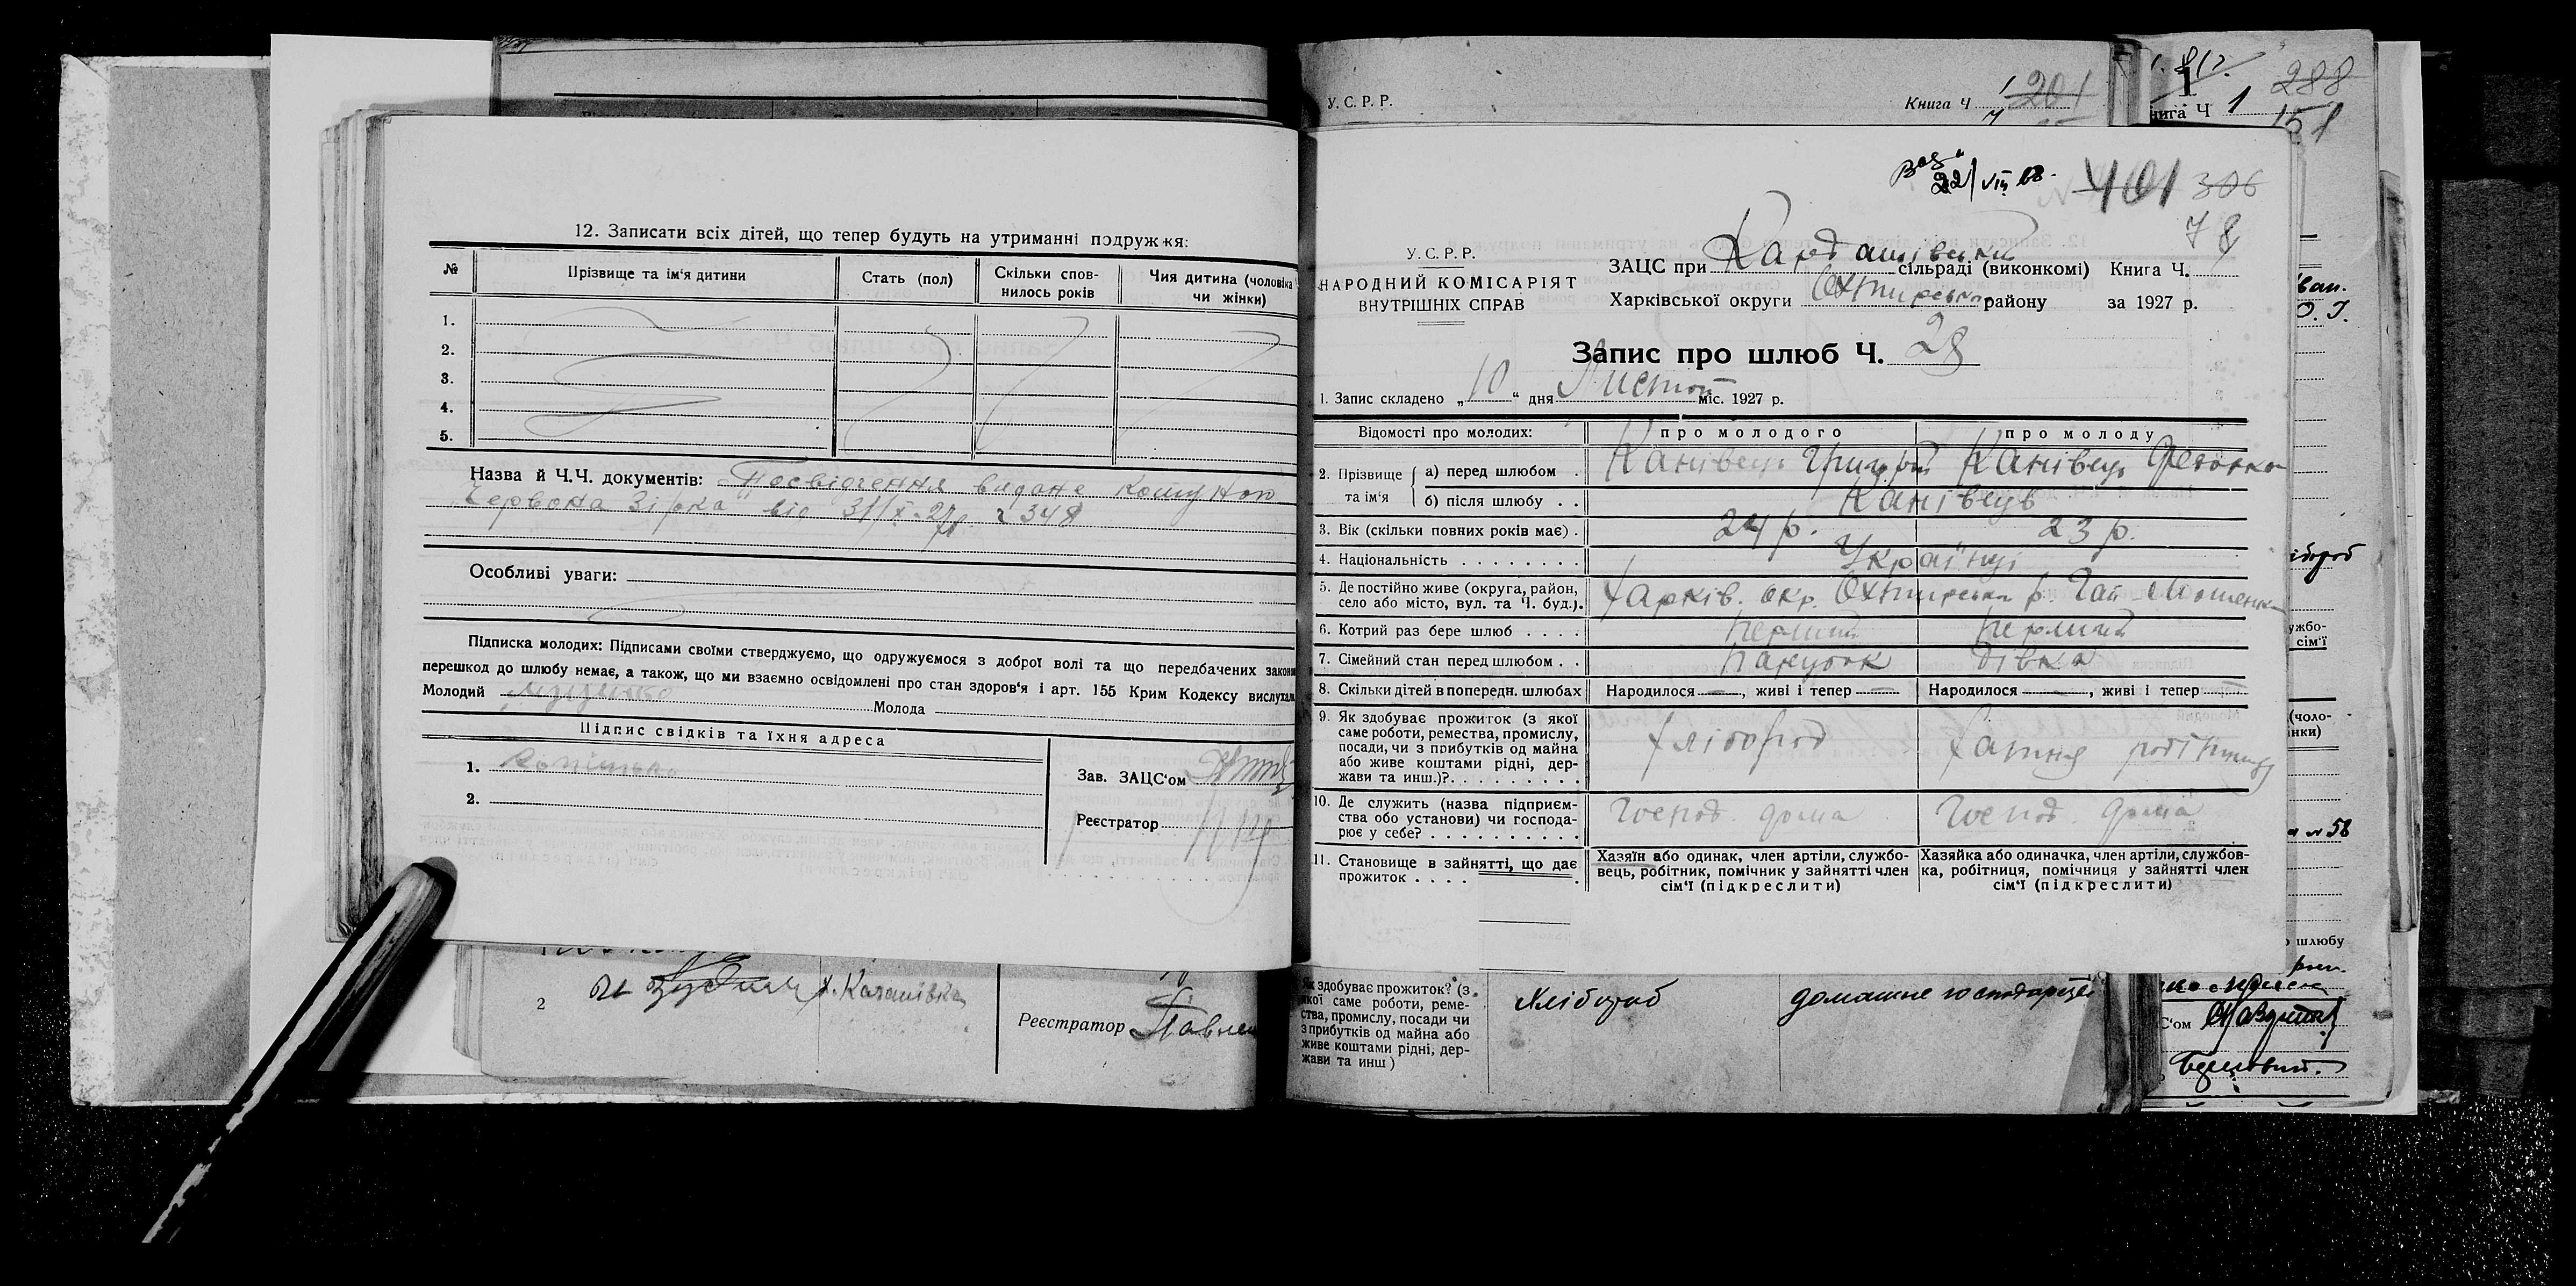 12. Записати всіх дітей, що тепер будуть на утриманні подружжя:
№ Прізвище та ім'я дитини Стать (пол) Скільки спов-нилось років Чия дитина (чоловіка чи жінки)
1.
2.
3.
4.
5.
Назва й Ч.Ч. документів: Посвідчення видане комуною
"Червона Зірка" від 31/X-27р. ч 348
Особливі уваги:
Підписка молодих: Підписами своїми стверджуємо, що одружуємося з доброї волі та що передбачених закон
перешкод до шлюбу немає, а також, що ми взаємно освідомлені про стан здоров'я і арт. 155 Крим Кодексу вислухал
Молодий Молода
Підпис свідків та їхня адреса
1.
2.
Зав. ЗАЦС'ом
Реєстратор
2 х. Каганівка
Реєстратор
У. С. Р. Р. Книга Ч 1 201
нига Ч 1 288
151
22/VIII 401 306
78
У. С. Р. Р.
НАРОДНИЙ КОМІСАРІЯТ
ВНУТРІШНІХ СПРАВ
ЗАЦС при Кардашівській сільраді (виконкомі) Книга Ч.
Харківської округи Охтирськ району за 1927 р.
Запис про шлюб Ч. 28
1. Запис складено „10“ дня Листоп міс. 1927 р.
Відомості про молодих: про молодого про молоду
2. Прізвище та ім'я
а) перед шлюбом . Канівець Григорій Канівець
б) після шлюбу . . Канівець
3. Вік (скільки повних років має) . 24 р. 23 р.
4. Національність . . . . . . . . Українці
5. Де постійно живе (округа, район, село або місто, вул. та Ч. буд.). Харків. окр. Охтирськ р. Гай-Мошенка
6. Котрий раз бере шлюб . . . . Перший Перший
7. Сімейний стан перед шлюбом . . парубок дівка
8. Скільки дітей в попередн. шлюбах Народилося —, живі і тепер — Народилося —, живі і тепер —
9. Як здобуває прожиток (з якої
саме роботи, ремества, промислу,
посади, чи з прибутків од майна
або живе коштами рідні, дер-
жави та инш.)?. . . . . . . . . Хлібороб Хатня робітниця
10. Де служить (назва підприєм-
ства обо установи) чи господа-
рює у себе? . . . . . . . . . . Господ. дома Господ. дома
11. Становище в зайнятті, що дає
прожиток . . . .
Хазяїн або одинак, член артіли, службо-
вець, робітник, помічник у зайнятті член
сім'ї (підкреслити)
Хазяйка або одиначка, член артіли, службов-
ка, робітниця, помічниця у зайнятті член
сім'ї (підкреслити)
Як здобуває прожиток? (з
якої саме роботи, реме-
ства, промислу, посади чи
з прибутків од майна або
живе коштами рідні, дер-
жави та инш) Хлібороб